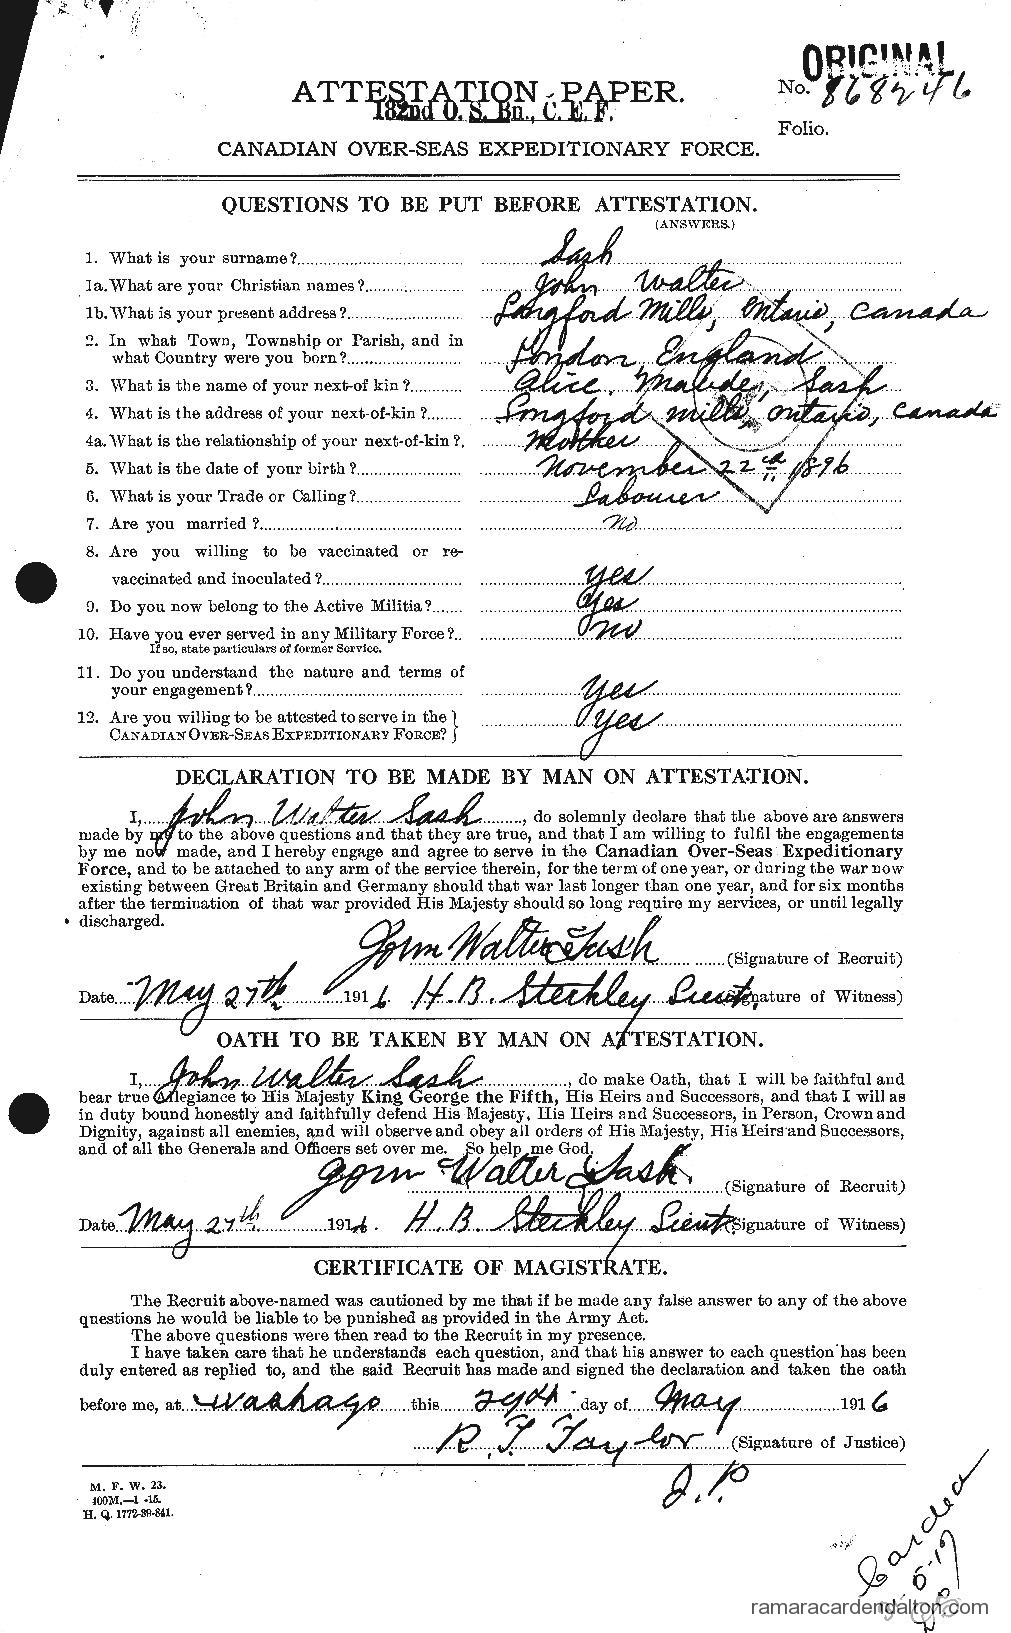 ORIGINAL
No. 868246
ATTESTATION PAPER.
182nd O. S. Bn., C. E. F.
Folio.
CANADIAN OVER-SEAS EXPEDITIONARY FORCE.
QUESTIONS TO BE PUT BEFORE ATTESTATION.
(ANSWERS.)
1. What is your surname? Sash
1a. What are your Christian names? John Walter
1b. What is your present address? Longford Mills, Ontario, Canada
2. In what Town, Township or Parish, and in
what Country were you born? London, England
3. What is the name of your next-of kin? Alice, Maude, Sash
4. What is the address of your next-of-kin? Longford Mills, Ontario, Canada
4a. What is the relationship of your next-of-kin? Mother
5. What is the date of your birth? November 22nd 1896
6. What is your Trade or Calling? Labourer
7. Are you married? No
8. Are you willing to be vaccinated or re-
vaccinated and inoculated? Yes
9. Do you now belong to the Active Militia? Yes
10. Have you ever served in any Military Force? No
If so, state particulars of former Service.
11. Do you understand the nature and terms of
your engagement? Yes
12. Are you willing to be attested to serve in the
CANADIAN OVER-SEAS EXPEDITIONARY FORCE? } Yes
DECLARATION TO BE MADE BY MAN ON ATTESTATION.
I, John Walter Sash, do solemnly declare that the above are answers
made by me to the above questions and that they are true, and that I am willing to fulfil the engagements
by me now made, and I hereby engage and agree to serve in the Canadian Over-Seas Expeditionary
Force, and to be attached to any arm of the service therein, for the term of one year, or during the war now
existing between Great Britain and Germany should that war last longer than one year, and for six months
after the termination of that war provided His Majesty should so long require my services, or until legally
discharged.
John Walter Sash (Signature of Recruit)
Date May 27th 1916 H. B. Steckley Lieut. (Signature of Witness)
OATH TO BE TAKEN BY MAN ON ATTESTATION.
I, John Walter Sash, do make Oath, that I will be faithful and
bear true Allegiance to His Majesty King George the Fifth, His Heirs and Successors, and that I will as
in duty bound honestly and faithfully defend His Majesty, His Heirs and Successors, in Person, Crown and
Dignity, against all enemies, and will observe and obey all orders of His Majesty, His Heirs and Successors,
and of all the Generals and Officers set over me. So help me God.
John Walter Sash (Signature of Recruit)
Date May 27th 1916. H. B. Steckley Lieut. (Signature of Witness)
CERTIFICATE OF MAGISTRATE.
The Recruit above-named was cautioned by me that if he made any false answer to any of the above
questions he would be liable to be punished as provided in the Army Act.
The above questions were then read to the Recruit in my presence.
I have taken care that he understands each question, and that his answer to each question has been
duly entered as replied to, and the said Recruit has made and signed the declaration and taken the oath
before me, at Washago this 29th day of May 1916
R. F. Taylor (Signature of Justice)
J. P.
M. F. W. 23.
400M.—1-15.
H. Q. 1772-39-841.
Carded
ramaracardendalton.com